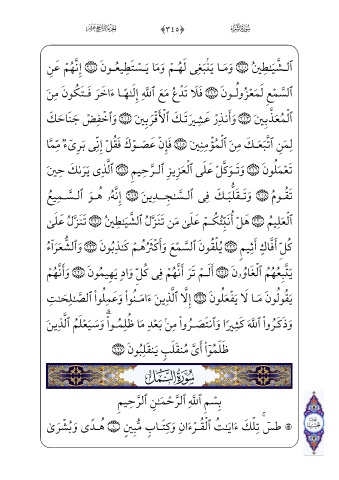 سُورَةُ الشُّعَرَاءِ ﴿٣٤٥﴾ الجزء التاسع عشر
ٱلشَّيَٰطِينُ ۝ وَمَا يَنۢبَغِى لَهُمْ وَمَا يَسْتَطِيعُونَ ۝ إِنَّهُمْ عَنِ
ٱلسَّمْعِ لَمَعْزُولُونَ ۝ فَلَا تَدْعُ مَعَ ٱللَّهِ إِلَٰهًا ءَاخَرَ فَتَكُونَ مِنَ
ٱلْمُعَذَّبِينَ ۝ وَأَنذِرْ عَشِيرَتَكَ ٱلْأَقْرَبِينَ ۝ وَٱخْفِضْ جَنَاحَكَ
لِمَنِ ٱتَّبَعَكَ مِنَ ٱلْمُؤْمِنِينَ ۝ فَإِنْ عَصَوْكَ فَقُلْ إِنِّى بَرِىٓءٌ مِّمَّا
تَعْمَلُونَ ۝ وَتَوَكَّلْ عَلَى ٱلْعَزِيزِ ٱلرَّحِيمِ ۝ ٱلَّذِى يَرَىٰكَ حِينَ
تَقُومُ ۝ وَتَقَلُّبَكَ فِى ٱلسَّٰجِدِينَ ۝ إِنَّهُۥ هُوَ ٱلسَّمِيعُ
ٱلْعَلِيمُ ۝ هَلْ أُنَبِّئُكُمْ عَلَىٰ مَن تَنَزَّلُ ٱلشَّيَٰطِينُ ۝ تَنَزَّلُ عَلَىٰ
كُلِّ أَفَّاكٍ أَثِيمٍ ۝ يُلْقُونَ ٱلسَّمْعَ وَأَكْثَرُهُمْ كَٰذِبُونَ ۝ وَٱلشُّعَرَآءُ
يَتَّبِعُهُمُ ٱلْغَاوُۥنَ ۝ أَلَمْ تَرَ أَنَّهُمْ فِى كُلِّ وَادٍ يَهِيمُونَ ۝ وَأَنَّهُمْ
يَقُولُونَ مَا لَا يَفْعَلُونَ ۝ إِلَّا ٱلَّذِينَ ءَامَنُوا۟ وَعَمِلُوا۟ ٱلصَّٰلِحَٰتِ
وَذَكَرُوا۟ ٱللَّهَ كَثِيرًا وَٱنتَصَرُوا۟ مِنۢ بَعْدِ مَا ظُلِمُوا۟ ۗ وَسَيَعْلَمُ ٱلَّذِينَ
ظَلَمُوٓا۟ أَىَّ مُنقَلَبٍ يَنقَلِبُونَ ۝
سُورَةُ ٱلنَّمْلِ
بِسْمِ ٱللَّهِ ٱلرَّحْمَٰنِ ٱلرَّحِيمِ
۞ طسٓ ۚ تِلْكَ ءَايَٰتُ ٱلْقُرْءَانِ وَكِتَابٍ مُّبِينٍ ۝ هُدًى وَبُشْرَىٰ